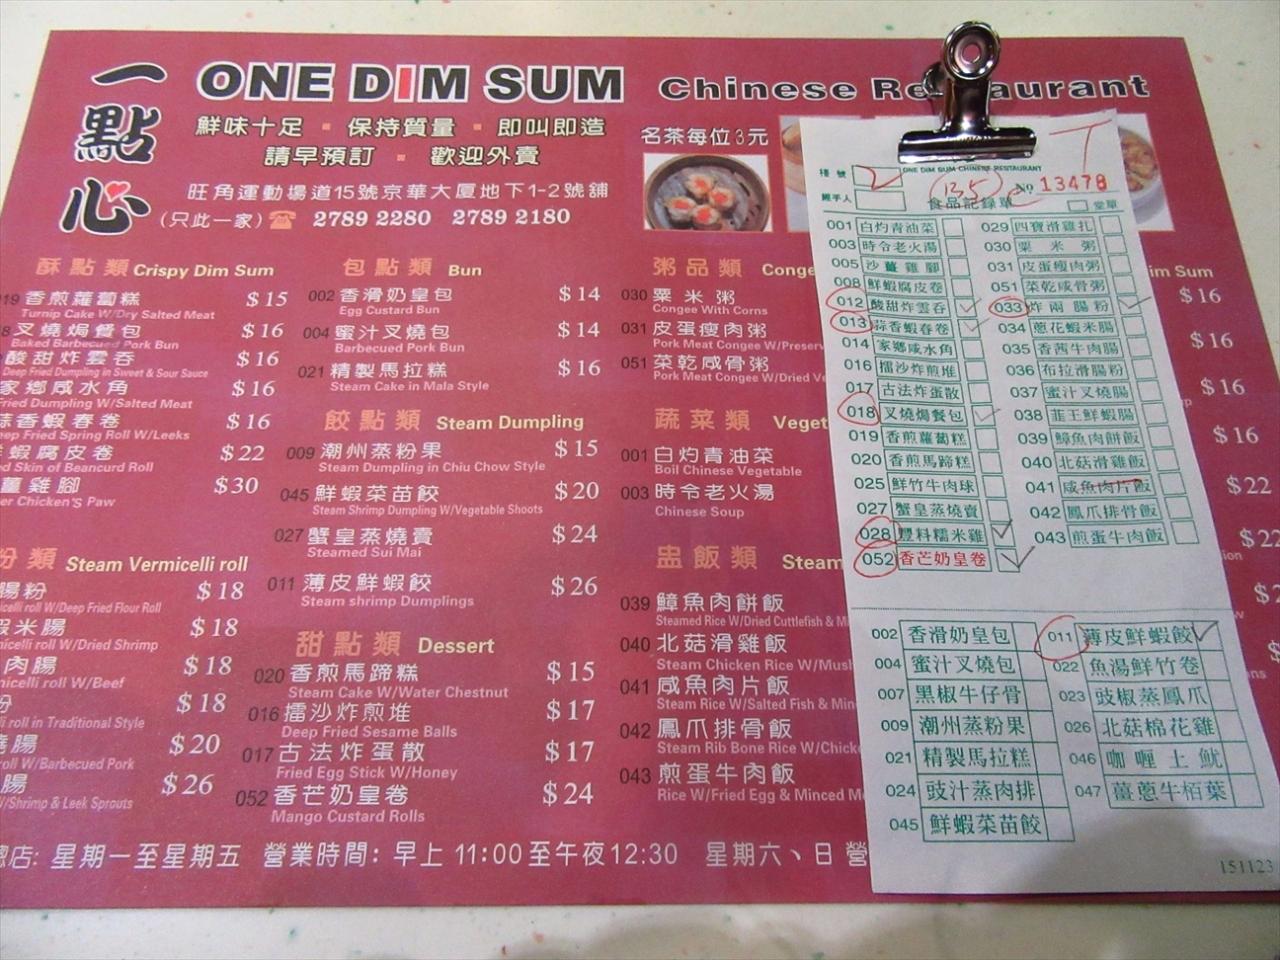 一點心
ONE DIM SUM Chinese Re aurant
鮮味十足 ▪ 保持質量 ▪ 即叫即造
請早預訂 ▪ 歡迎外賣
名茶每位3元
旺角運動場道15號京華大厦地下1-2號舖
(只此一家) ☎ 2789 2280 2789 2180
酥點類 Crispy Dim Sum
19 香煎蘿蔔糕 $15
Turnip Cake W/Dry Salted Meat
8 叉燒焗餐包 $16
Baked Barbecued Pork Bun
酸甜炸雲吞 $16
Deep Fried Dumpling in Sweet & Sour Sauce
家鄉咸水角 $16
Fried Dumpling W/Salted Meat
蒜香蝦春卷 $16
Fried Spring Roll W/Leeks
蝦腐皮卷 $22
Skin of Beancurd Roll
薑雞腳 $30
Chicken'S Paw
粉類 Steam Vermicelli roll
腸粉 $18
roll W/Deep Fried Flour Roll
蝦米腸 $18
roll W/Dried Shrimp
肉腸 $18
roll W/Beef
粉 $18
roll in Traditional Style
燒腸 $20
roll W/Barbecued Pork
腸 $26
W/Shrimp & Leek Sprouts
包點類 Bun
002 香滑奶皇包 $14
Egg Custard Bun
004 蜜汁叉燒包 $14
Barbecued Pork Bun
021 精製馬拉糕 $16
Steam Cake in Mala Style
餃點類 Steam Dumpling
009 潮州蒸粉果 $15
Steam Dumpling in Chiu Chow Style
045 鮮蝦菜苗餃 $20
Steam Shrimp Dumpling W/Vegetable Shoots
027 蟹皇蒸燒賣 $24
Steamed Sui Mai
011 薄皮鮮蝦餃 $26
Steam shrimp Dumplings
甜點類 Dessert
020 香煎馬蹄糕 $15
Steam Cake W/Water Chestnut
016 擂沙炸煎堆 $17
Deep Fried Sesame Balls
017 古法炸蛋散 $17
Fried Egg Stick W/Honey
052 香芒奶皇卷 $24
Mango Custard Rolls
粥品類 Conge
030 粟米粥
Congee With Corns
031 皮蛋瘦肉粥
Pork Meat Congee W/Preserv
051 菜乾咸骨粥
Pork Meat Congee W/Dried Ve
蔬菜類 Veget
001 白灼青油菜
Boil Chinese Vegetable
003 時令老火湯
Chinese Soup
盅飯類 Steam
039 鱆魚肉餅飯
Steamed Rice W/Dried Cuttlefish & Mi
040 北菇滑雞飯
Steam Chicken Rice W/Mush
041 咸魚肉片飯
Steam Rice W/Salted Fish & Min
042 鳳爪排骨飯
Steam Rib Bone Rice W/Chick
043 煎蛋牛肉飯
Rice W/Fried Egg & Minced M
im Sum
$16
$16
$16
$16
$22
$22
總店: 星期一至星期五 營業時間: 早上 11:00 至午夜12:30 星期六、日 營
ONE DIM SUM CHINESE RESTAURANT
檯號 2
135 No 13478
經手人 食品記錄單 堂單
001 白灼青油菜 029 四寶滑雞扎
003 時令老火湯 030 粟米粥
005 沙薑雞腳 031 皮蛋瘦肉粥
008 鮮蝦腐皮卷 051 菜乾咸骨粥
012 酸甜炸雲吞 033 炸兩腸粉
013 蒜香蝦春卷 034 蔥花蝦米腸
014 家鄉咸水角 035 香茜牛肉腸
016 擂沙炸煎堆 036 布拉滑腸粉
017 古法炸蛋散 037 蜜汁叉燒腸
018 叉燒焗餐包 038 韮王鮮蝦腸
019 香煎蘿蔔糕 039 鱆魚肉餅飯
020 香煎馬蹄糕 040 北菇滑雞飯
025 鮮竹牛肉球 041 咸魚肉片飯
027 蟹皇蒸燒賣 042 鳳爪排骨飯
028 豐料糯米雞 043 煎蛋牛肉飯
052 香芒奶皇卷
002 香滑奶皇包 011 薄皮鮮蝦餃
004 蜜汁叉燒包 022 魚湯鮮竹卷
007 黑椒牛仔骨 023 豉椒蒸鳳爪
009 潮州蒸粉果 026 北菇棉花雞
021 精製馬拉糕 046 咖喱土魷
024 豉汁蒸肉排 047 薑蔥牛栢葉
045 鮮蝦菜苗餃
151123